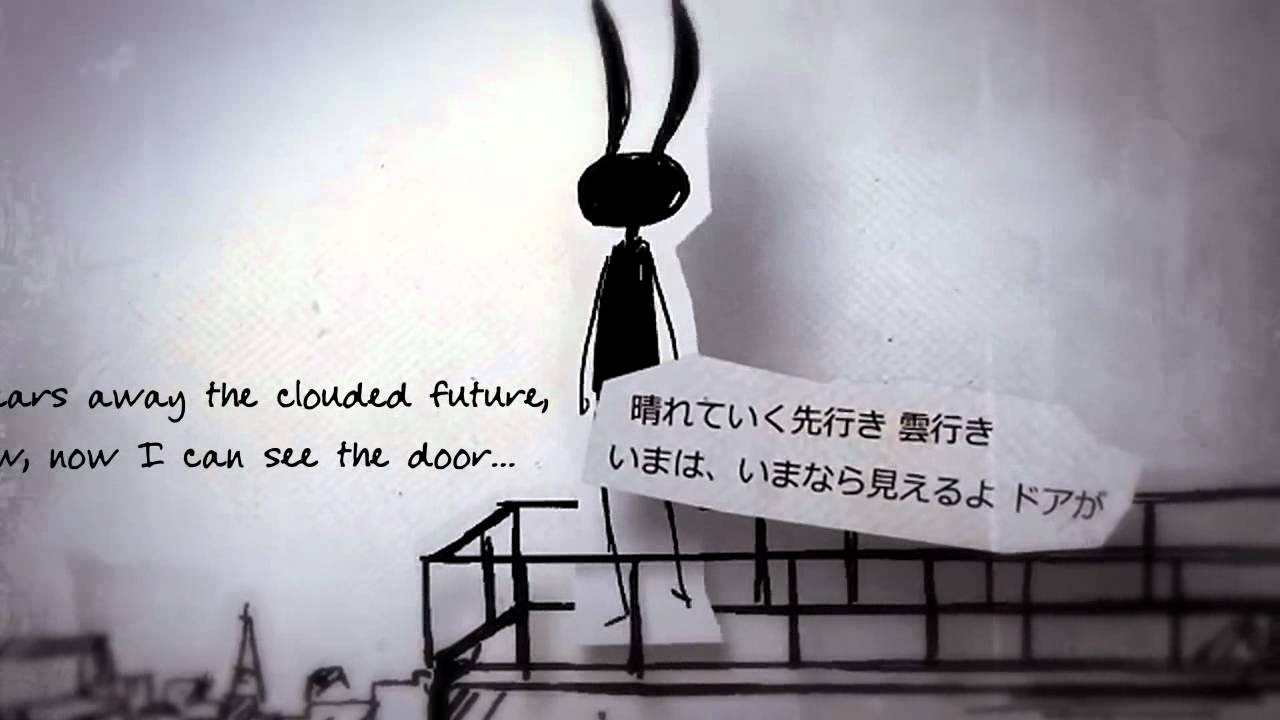 ears away the clouded future,
w, now I can see the door...
晴れていく先行き 雲行き
いまは、いまなら見えるよ ドアが